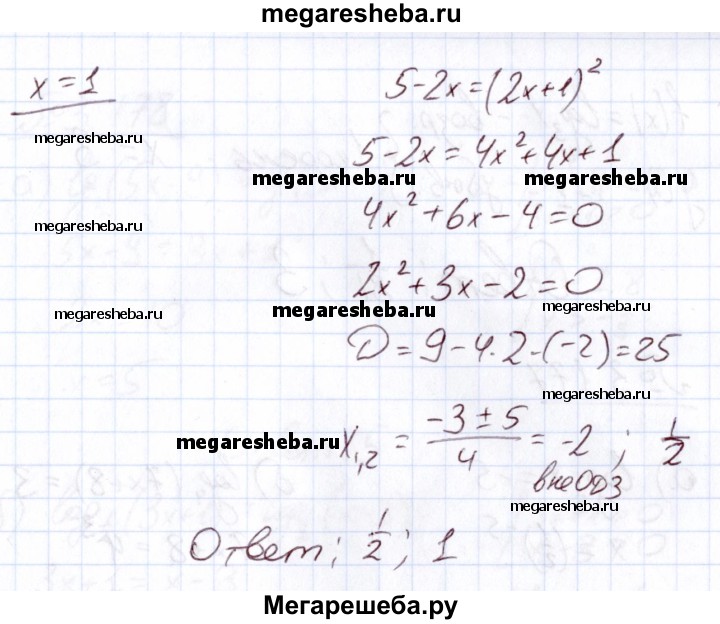 megaresheba.ru
x = 1
5-2x=(2x+1)²
megaresheba.ru
5-2x=4x²+4x+1
megaresheba.ru megaresheba.ru
4x²+6x-4=0
megaresheba.ru
2x²+3x-2=0
megaresheba.ru megaresheba.ru megaresheba.ru
D=9-4·2·(-2)=25
megaresheba.ru
x₁,₂ = (-3±5)/4 = -2 ; 1/2
megaresheba.ru
вне ОДЗ
megaresheba.ru
Ответ; 1/2; 1
Мегарешеба.ру